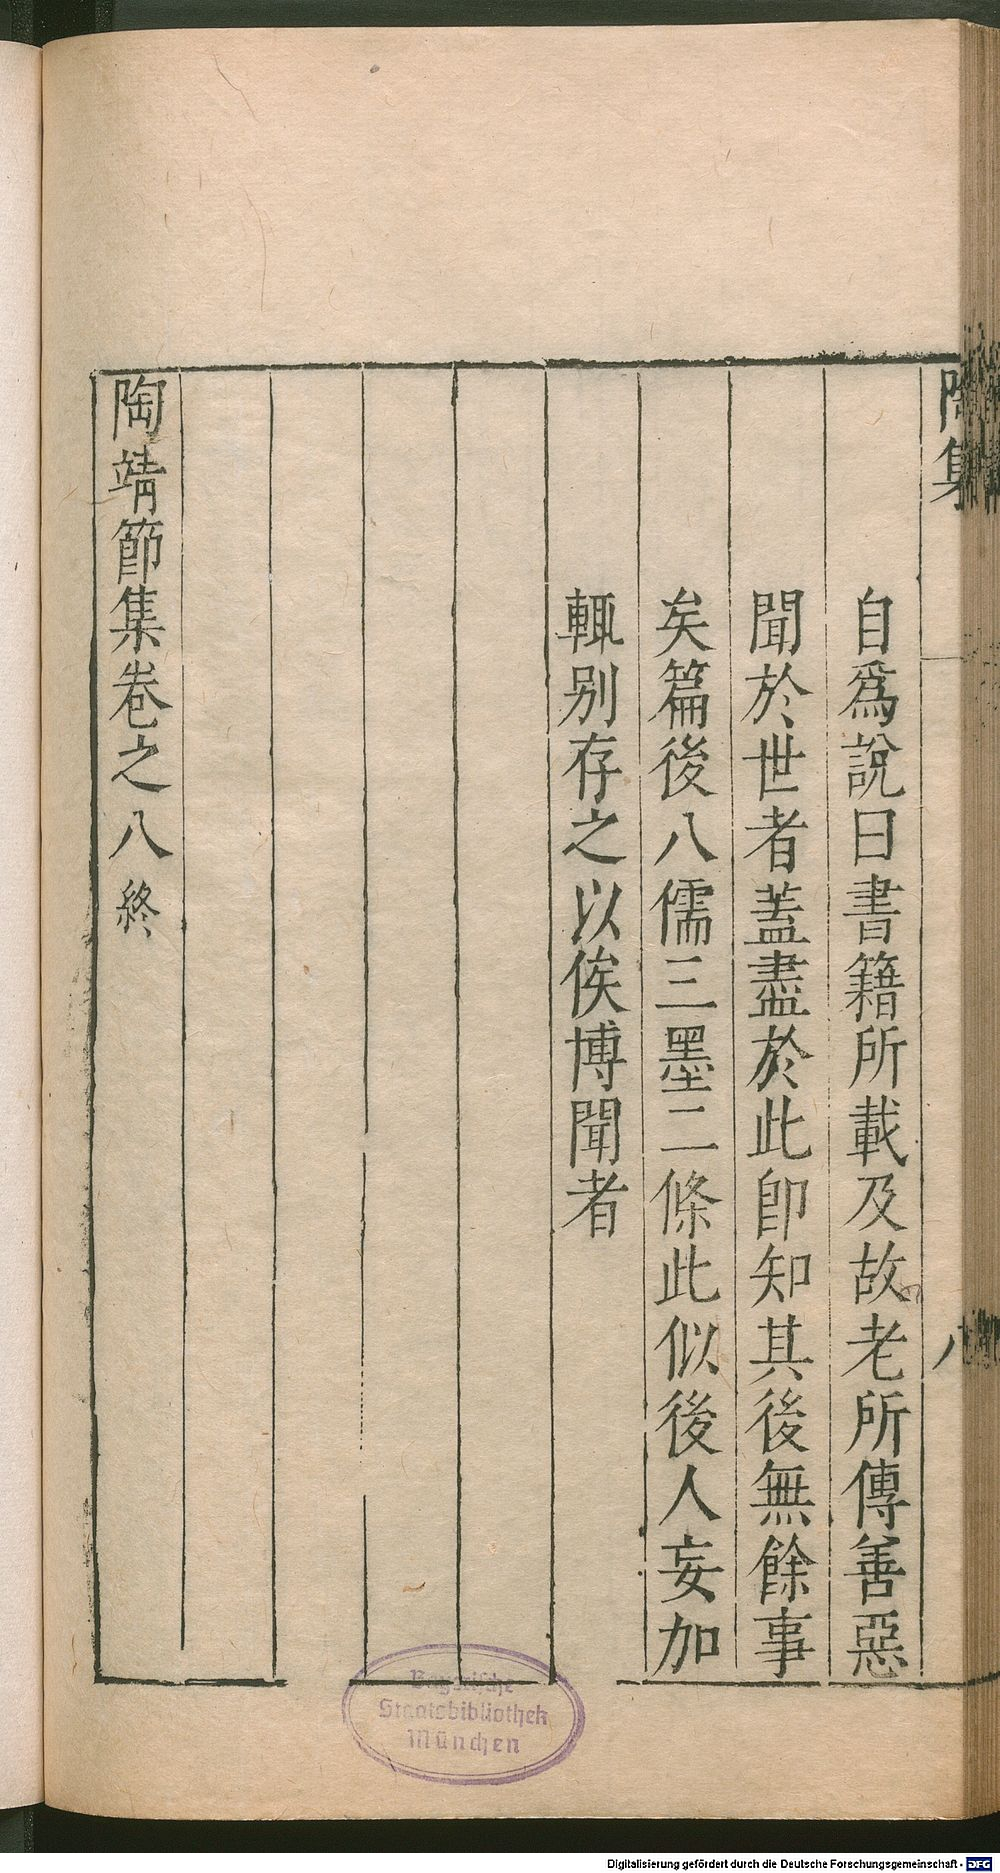 陶集
八
自爲說曰書籍所載及故老所傳善惡
聞於世者蓋盡於此卽知其後無餘事
矣篇後八儒三墨二條此似後人妄加
輒別存之以俟博聞者
陶靖節集卷之八終
Bayerische
Staatsbibliothek
München
Digitalisierung gefördert durch die Deutsche Forschungsgemeinschaft - DFG